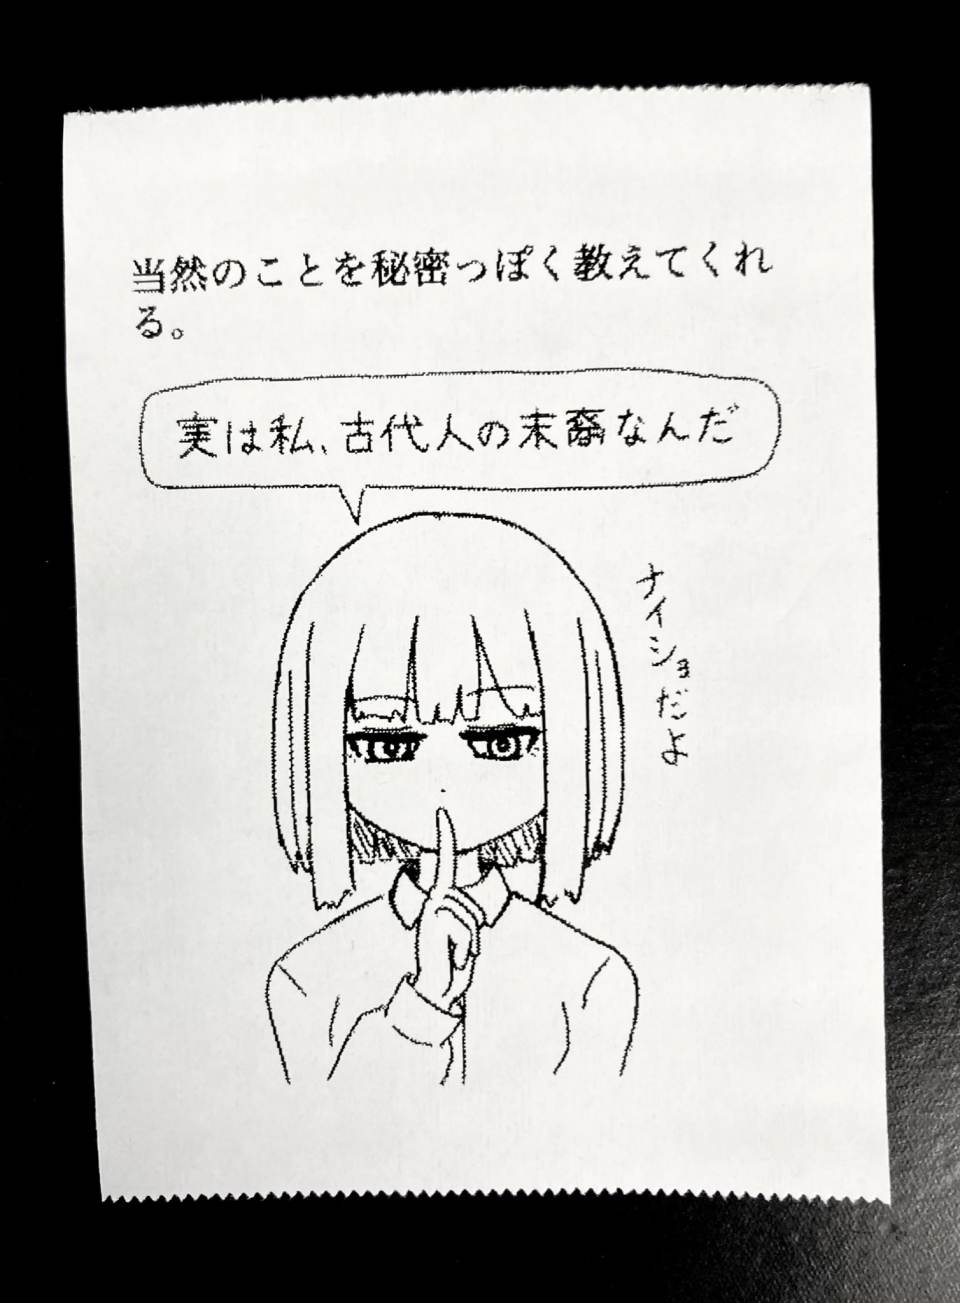 当然のことを秘密っぽく教えてくれ
る。
実は私、古代人の末裔なんだ
ナイショだよ